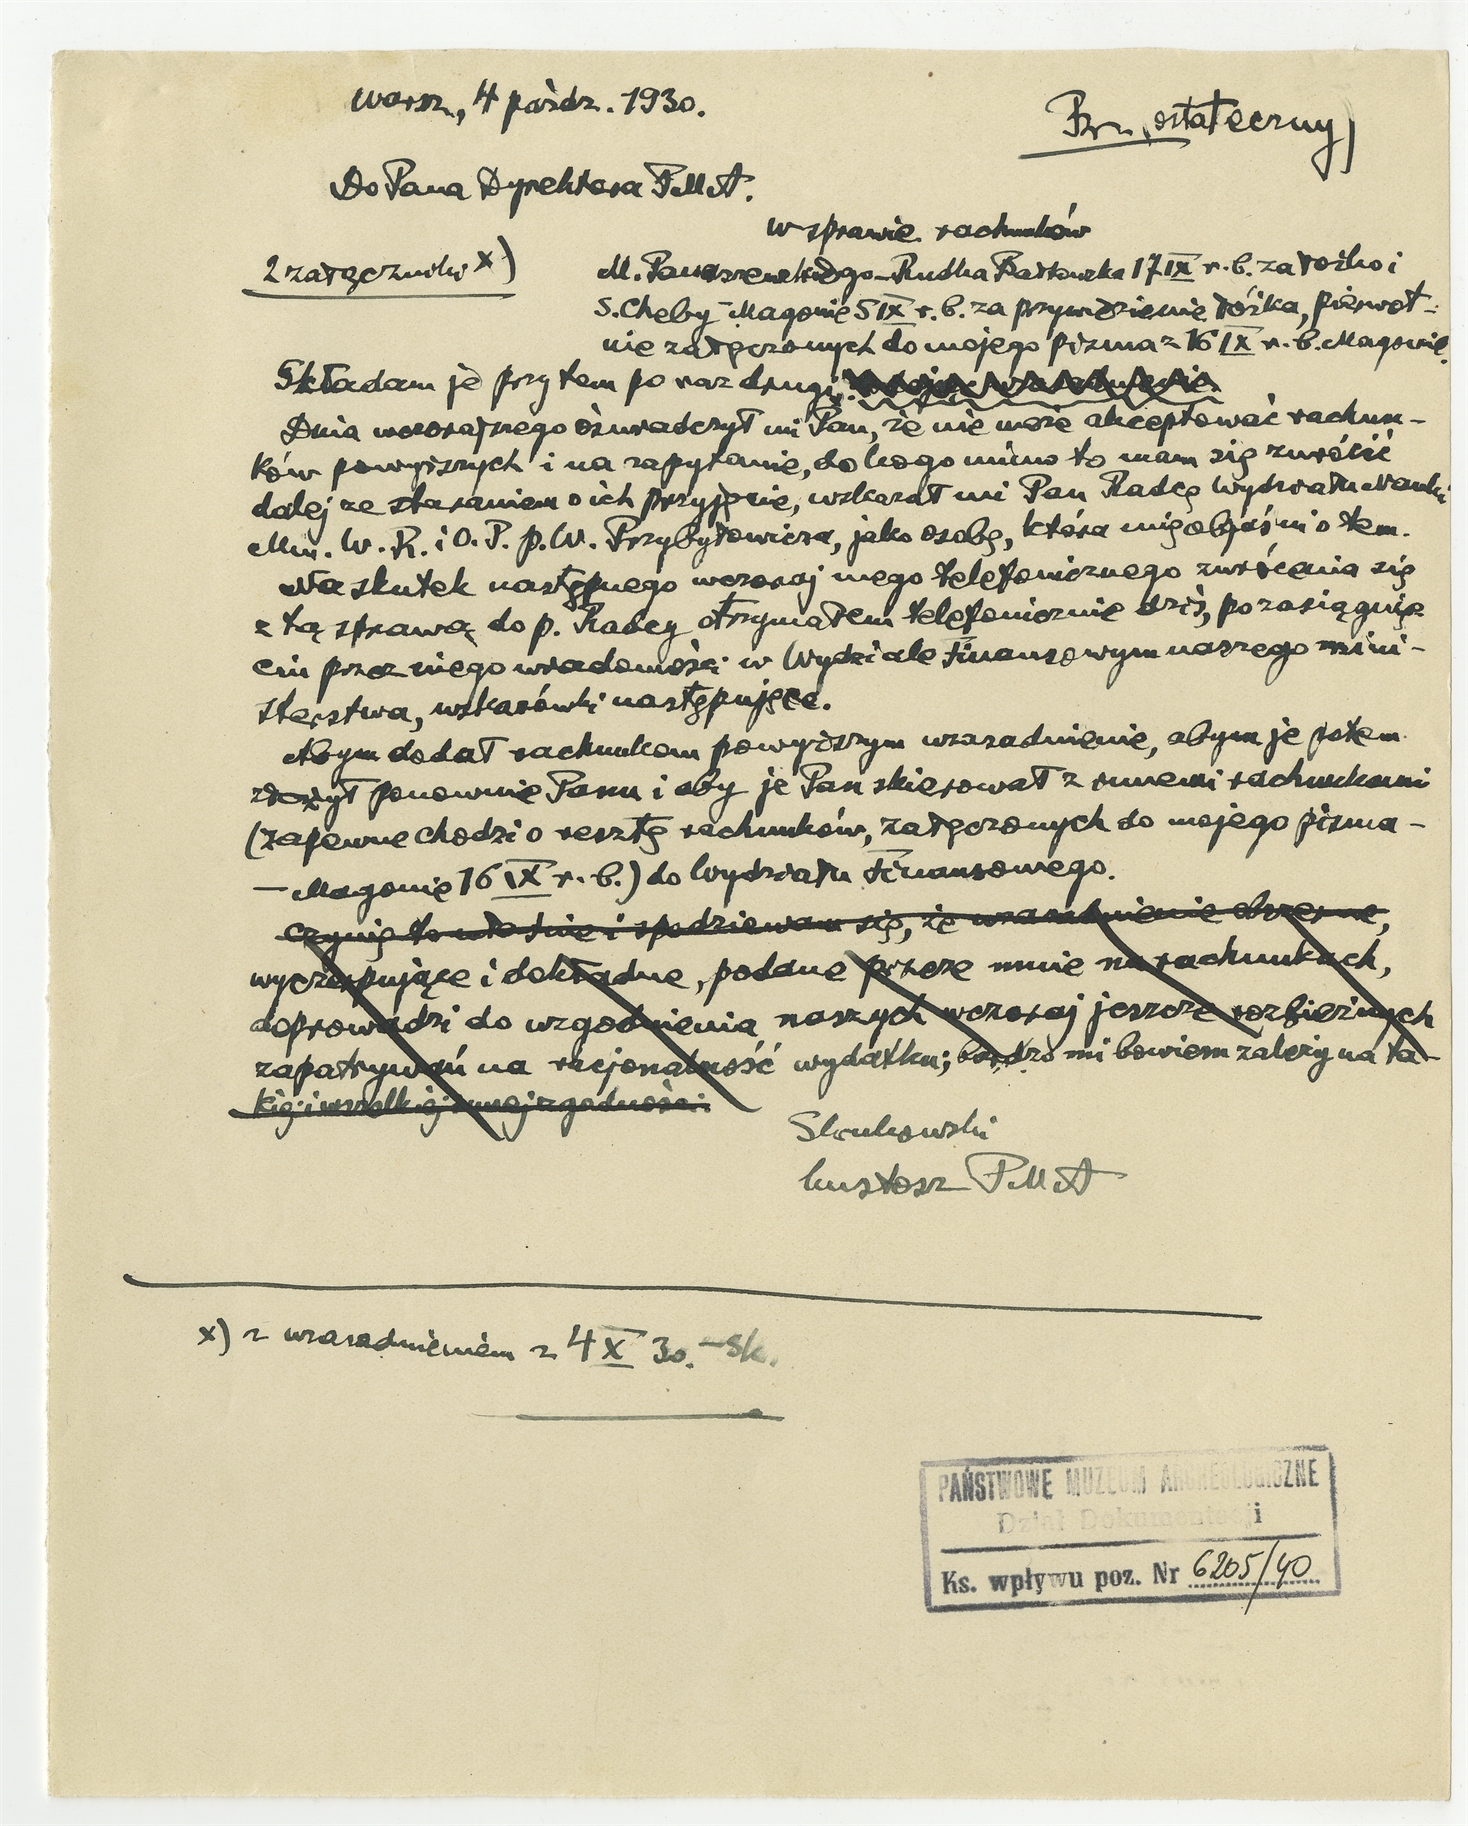 Warsz., 4 paźdz. 1930.
Brn (ostateczny)
Do Pana Dyrektora P.M.A.
w sprawie rachunków
2 załączniki x)
M. Paraszewskiego – Rudka Bartowska 17 IX r.b. za łóżko i
S. Cheby – Magonie 5 IX r.b. za przywiezienie łóżka, pierwot-
nie załączonych do mojego pisma z 16 IX r.b. Magonie.
Składam je przytem po raz drugi,
Dnia wczorajszego oświadczył mi Pan, że nie może akceptować rachun-
ków powyższych i na zapytanie, do kogo mimo to mam się zwrócić
dalej ze staraniem o ich przyjęcie, wskazał mi Pan Radcę Wydziału Nauki
Min. W. R. i O. P. p. W. Przybyłowicza, jako osobę, która mię objaśni o tem.
Na skutek następnego wczoraj mego telefonicznego zwrócenia się
z tą sprawą do p. Radcy otrzymałem telefonicznie dziś, po zasiągnię-
ciu przez niego wiadomości w Wydziale Finansowym naszego mini-
sterstwa, wskazówki następujące.
Abym dodał rachunkom powyższym uzasadnienie, abym je potem
złożył ponownie Panu i aby je Pan skierował z innemi rachunkami
(zapewne chodzi o resztę rachunków, załączonych do mojego pisma –
– Magonie 16 IX r.b.) do Wydziału Finansowego.
Czynię to właśnie i spodziewam się, że uzasadnienie obszerne,
wyczerpujące i dokładne, podane przeze mnie na rachunkach,
doprowadzi do uzgodnienia naszych wczoraj jeszcze rozbieżnych
zapatrywań na racjonalność wydatku; bardzo mi bowiem zależy na ta-
kiej i wszelkiej innej zgodności.
Slenkowski
kustosz P.M.A
x) z uzasadnieniem z 4 X 30. – Sk.
PAŃSTWOWE MUZEUM ARCHEOLOGICZNE
Dział Dokumentacji
Ks. wpływu poz. Nr 6205/40